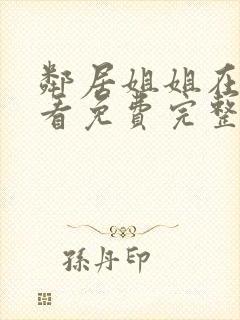 鄰居姐姐在
看免費完整
孫丹印